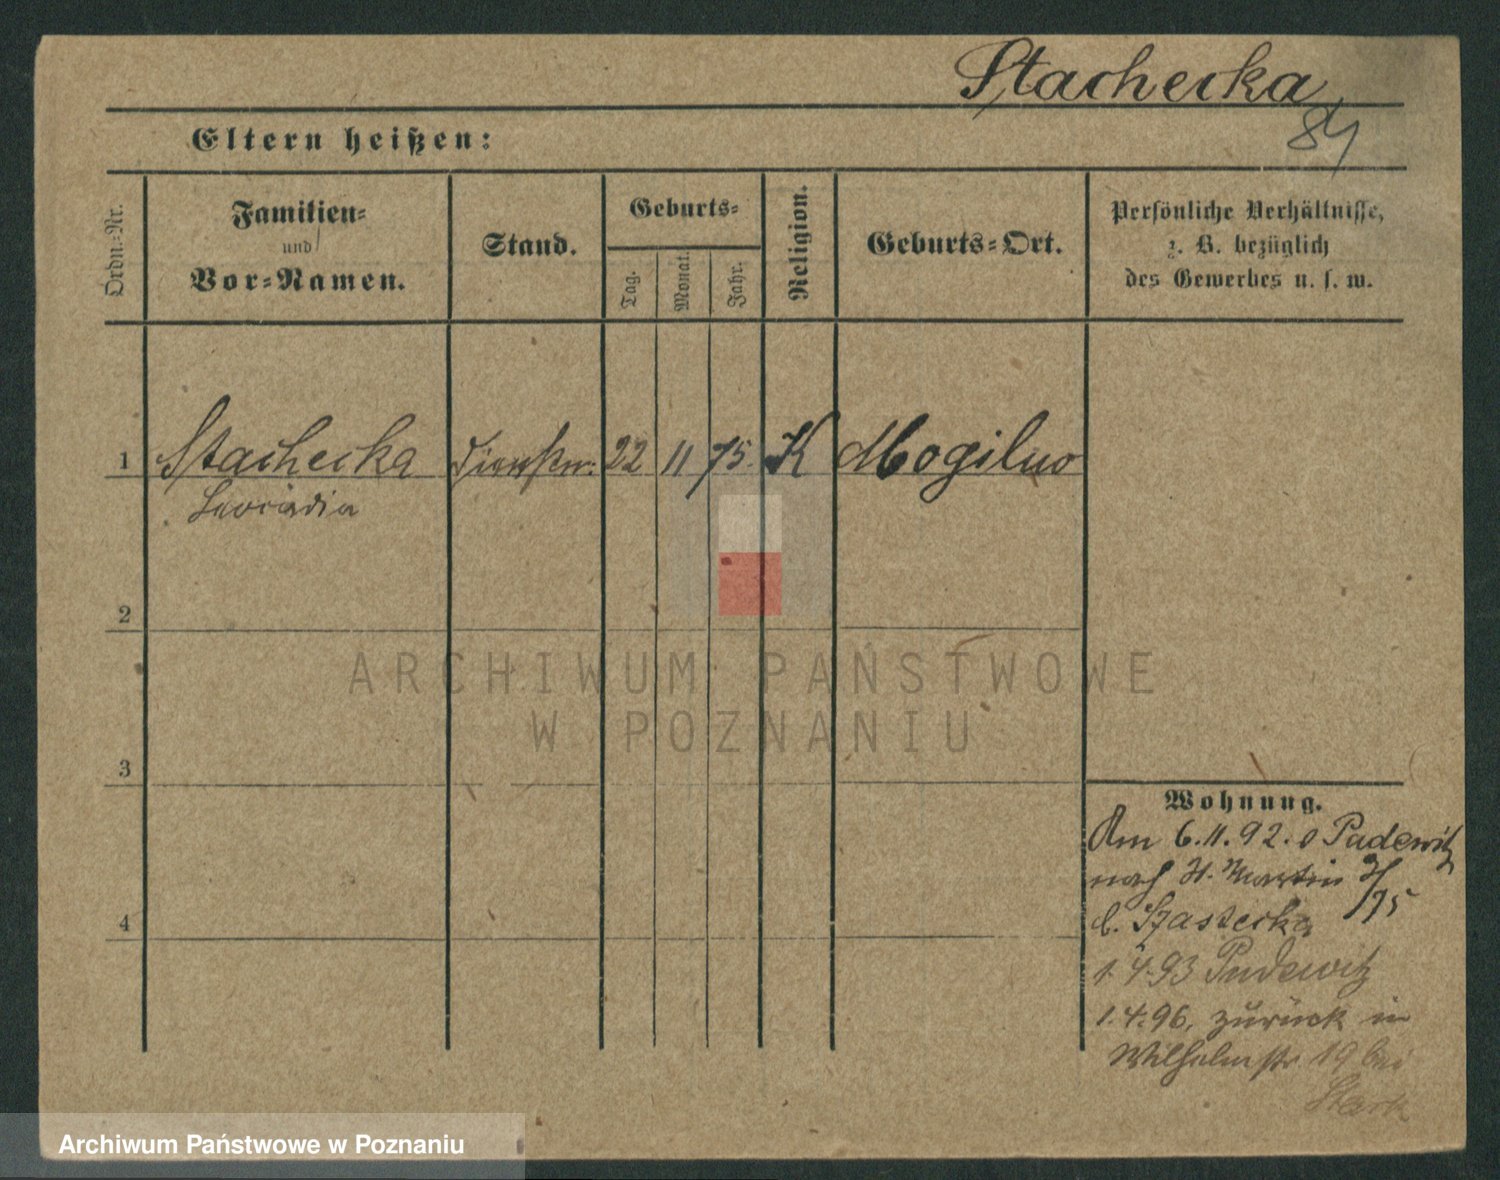 Stachecka
84
Eltern heißen:
Ordn.-Nr.
Familien-
und
Vor-Namen.
Stand.
Geburts-
Tag.
Monat.
Jahr.
Religion.
Geburts-Ort.
Persönliche Verhältnisse,
z. B. bezüglich
des Gewerbes u. s. w.
1 Stachecka 22 11 75. K Mogilno
Leocadia
2
ARCHIWUM PAŃSTWOWE
W POZNANIU
3
Wohnung.
Am 6.11.92. Pudewitz
nach St. Martin
b. 75
4
1.4.93 Pudewitz
1.4.96, zurück in
Wilhelmstr 19 bei
Stark
Archiwum Państwowe w Poznaniu